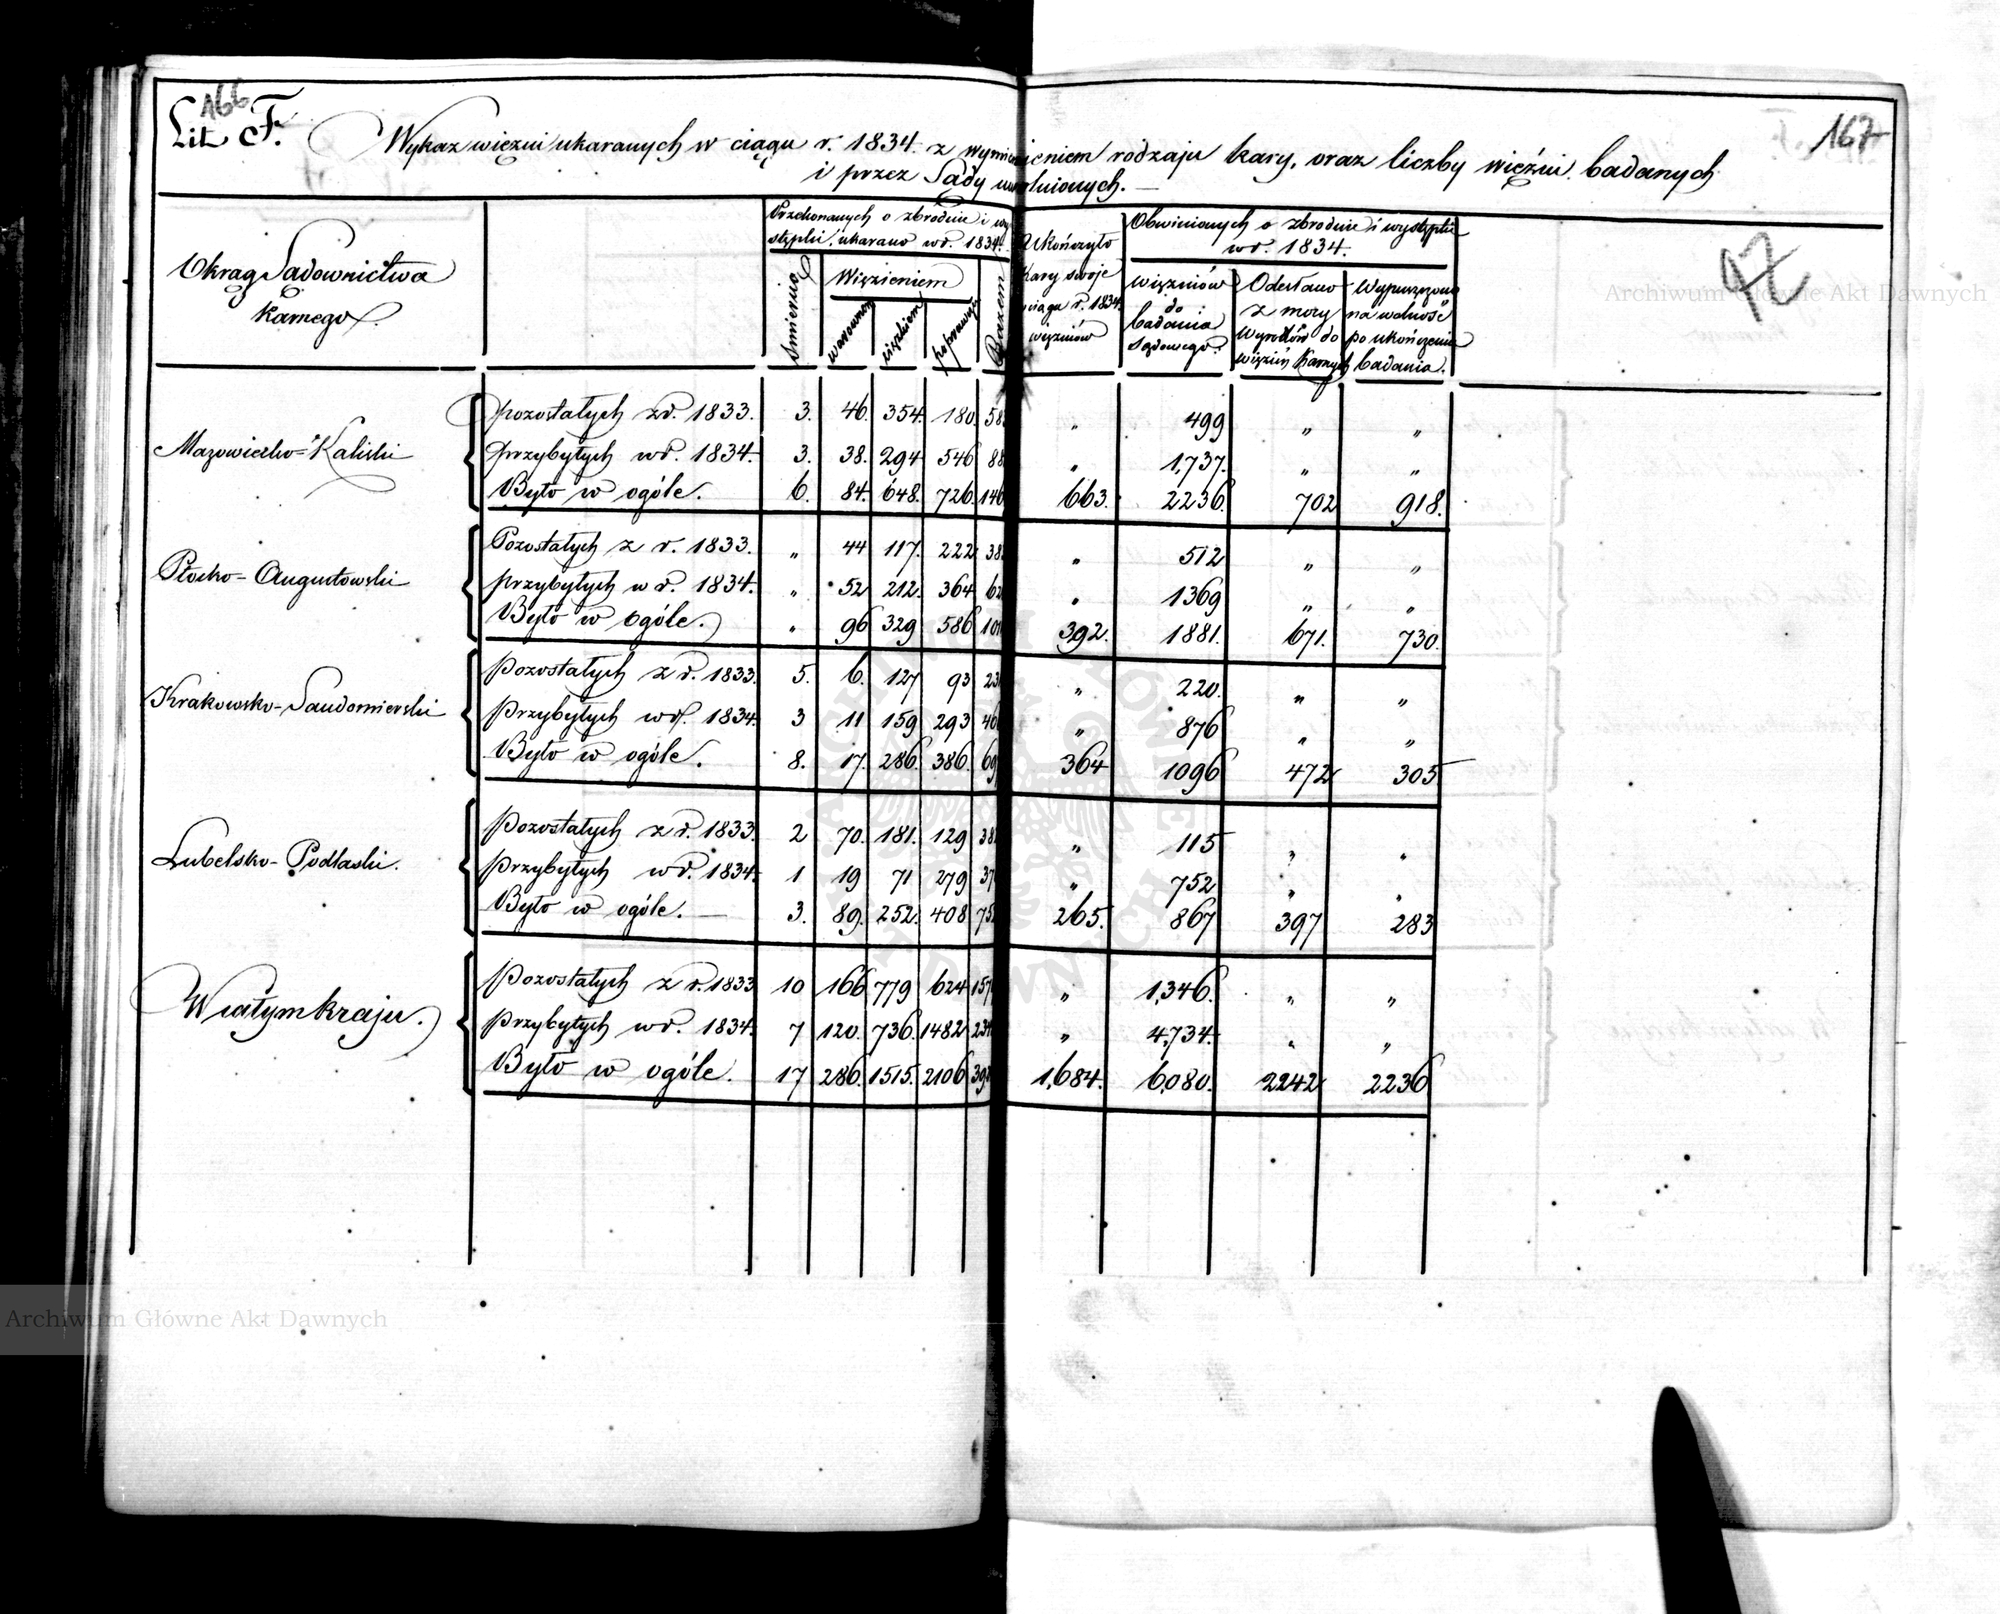 166
Lit. F.
167
Wykaz więzni ukaranych w ciągu r. 1834. z wymienieniem rodzaju kary, oraz liczby więźni badanych
i przez Sądy uwolnionych. —
92
Okrąg Sądownictwa Karnego.
Przekonanych o zbrodnie i występki, ukarano w r. 1834.
śmiercią
Więzieniem
warownem
ciężkiem
poprawczem
Razem
Ukończyło
kary swoje
ciągu r. 1834
więzniów
Obwinionych o zbrodnie i występki
w r. 1834.
więzniów do badania Sądowego.
Odesłano z mocy Wyroków do więzień Karnych
Wypuszczono na wolność po ukończeniu badania.
Mazowiecko-Kaliski
pozostałych z r. 1833. 3. 46. 354. 180. 58 " 499 " "
przybyłych w r. 1834. 3. 38. 294 546 88 " 1,737. " "
Było w ogóle. 6. 84. 648. 726. 146 663. 2236. 702 918.
Płocko-Augustowski
Pozostałych z r. 1833. " 44 117. 222 38 " 512 " "
przybyłych w r. 1834. " 52 212. 364 62 " 1369 " "
Było w ogóle. " 96 329 586 101 392. 1881. 671. 730.
Krakowsko-Sandomierski
pozostałych z r. 1833. 5. 6. 127 93 23 " 220. " "
Przybyłych w r. 1834. 3 11 159 293 46 " 876 " "
Było w ogóle. 8. 17. 286. 386. 69 364 1096 472 305
Lubelsko-Podlaski.
Pozostałych z r. 1833 2 70. 181. 129 38 " 115 " "
Przybyłych w r. 1834. 1 19 71 279 37 " 752 " "
Było w ogóle. — 3. 89. 252. 408 75 265. 867 397 283
W całym kraju.
Pozostałych z r. 1833 10 166 779 624 157 " 1,346. " "
Przybyłych w r. 1834. 7 120. 736. 1482 234 " 4,734. " "
Było w ogóle. 17 286. 1515. 2106 392 1,684. 6,080. 2242 2236
Archiwum Główne Akt Dawnych
Archiwum Główne Akt Dawnych